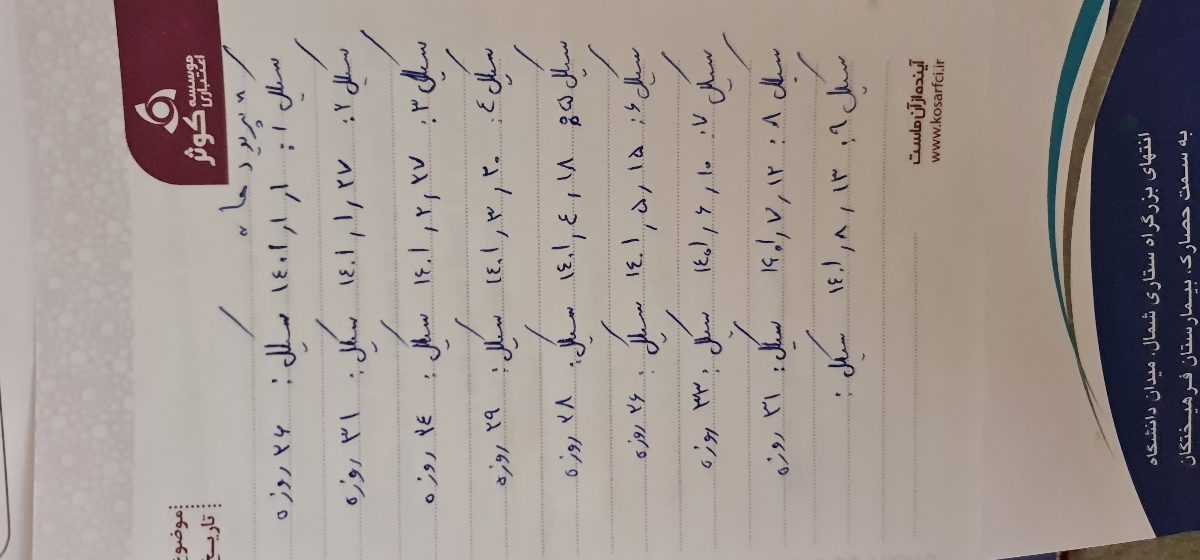 موسسه اعتباری
کوثر
موضوع:
تاریخ:
" پریود ها "
سیکل ۱: ۱٤۰۱٫۱٫۱ سیکل: ۲۶ روزه
سیکل ۲: ۱٤۰۱٫۱٫۲۷ سیکل: ۳۱ روزه
سیکل ۳: ۱٤۰۱٫۲٫۲۷ سیکل: ۲٤ روزه
سیکل ٤: ۱٤۰۱٫۳٫۲۰ سیکل: ۲۹ روزه
سیکل ۵: ۱٤۰۱٫٤٫۱۸ سیکل: ۲۸ روزه
سیکل ۶: ۱٤۰۱٫۵٫۱۵ سیکل: ۲۶ روزه
سیکل ۷: ۱٤۰۱٫۶٫۱۰ سیکل: ۳۳ روزه
سیکل ۸: ۱٤۰۱٫۷٫۱۲ سیکل: ۳۱ روزه
سیکل ۹: ۱٤۰۱٫۸٫۱۳ سیکل:
آینده از آن ماست
www.kosarfci.ir
انتهای بزرگراه ستاری شمال، میدان دانشگاه
به سمت حصارک، بیمارستان فرهیختگان